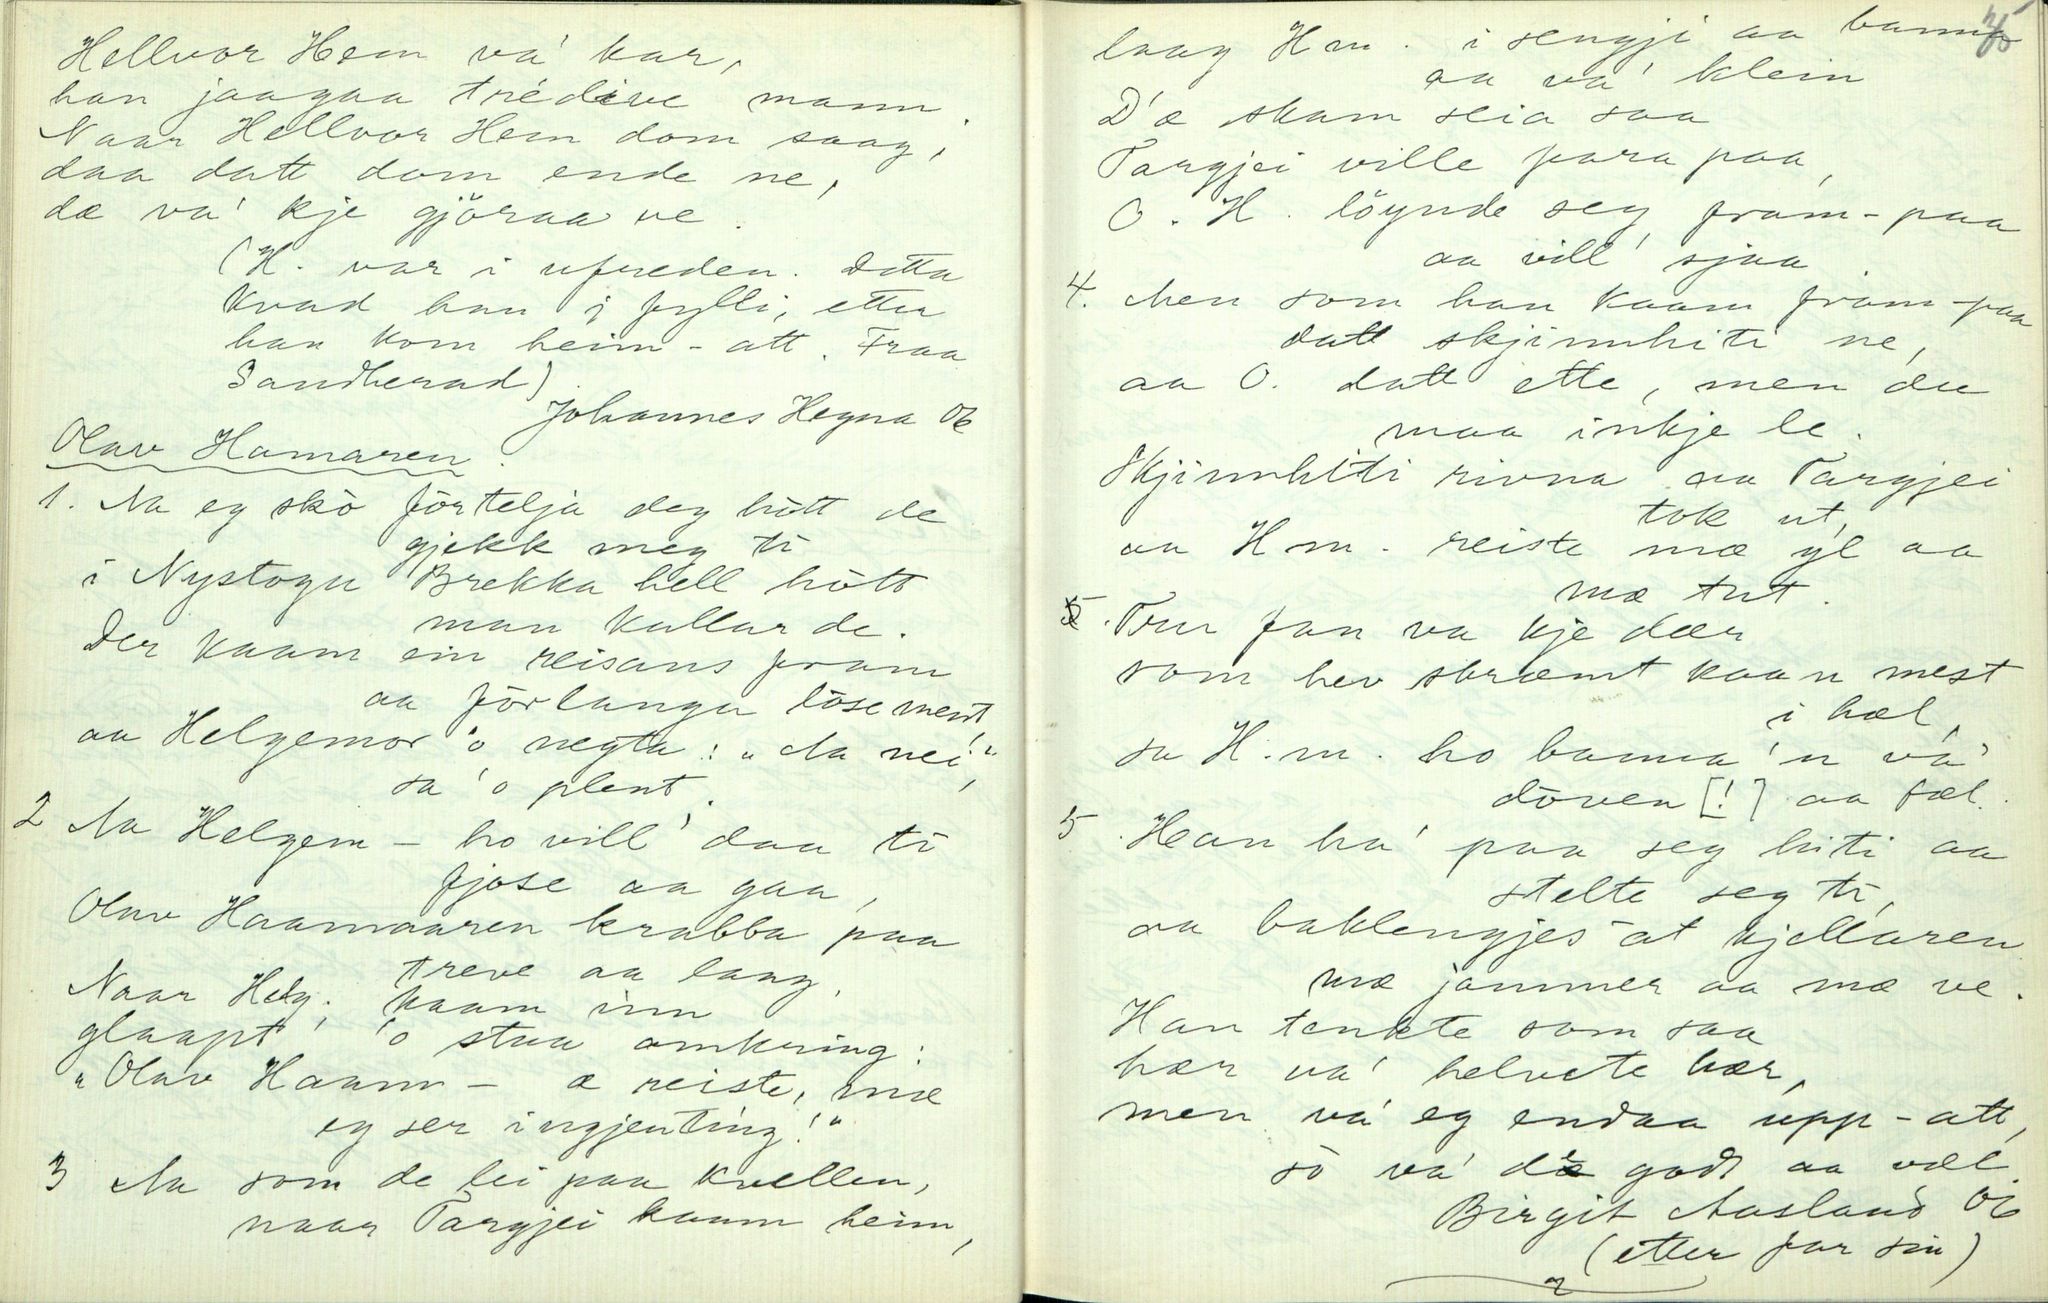 Hellvor Hem va' kar,
han jaagaa trédive mann
Naar Hellvor Hem dom saag,
daa datt dom ende ne,
dæ va' kje gjöraa ve.
(H. var i ufreden. Detta
kvad han i fylli, etter
han kom heim-att. Fraa
Sandherad)
Johannes Hegna
Olav Hamaren.
1. Aa eg sko förtelja deg hott de
gjekk meg ti
i Nystogu Brekka hell hott
man kallar de.
Der kaam ein reisans fram
aa förlangu lösement
aa Helgemor 'o negta: "Aa nei,"
sa 'o plent.
2 Aa Helgem - ho vill' daa ti
fjose aa gaa,
Olav Haamaaren krabba paa
treve aa laag.
Naar Helg. kaam inn
glaapt' 'o stua omkring:
"Olav Haam - æ reiste, mæ
eg ser ingjenting!"
3 Aa som de lei paa kvellen,
naar Targjei kaam heim,
75
laag Hm. i sengji aa banna
aa va' klein
D'æ skam seia saa
Targjei ville fara paa,
O. H. löynde seg fram-paa
aa vill' sjaa.
4. Men som han kaam fram-paa
datt skjinnhiti ne,
aa O. datt ette, men du
maa inkje le.
Skjinnhiti rivna aa Targjei
tok ut,
aa Hm. reiste mæ yl aa
mæ tut.
5. Tru fan va kje dær
som hev skræmt kaan mest
i hæl,
sa H.m. ho banna 'n va'
doven [!] aa fæl.
5. Han ha' paa seg hiti aa
stelte seg ti,
aa baklengjes at kjellaren
mæ jammer aa mæ ve.
Han tenkte som saa
hær va' helvete hær,
men va' eg endaa upp-att,
so va' dæ godt aa væl.
Birgit Aasland
(etter far sin)